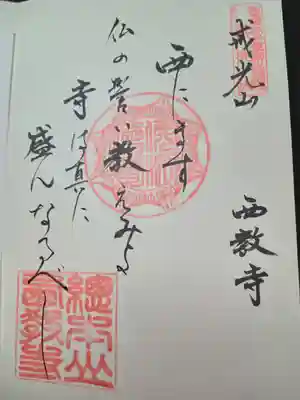 戒光山
西教寺
西にます
仏の誓い教え
寺は真に
盛んなるべし
總本山
西教寺